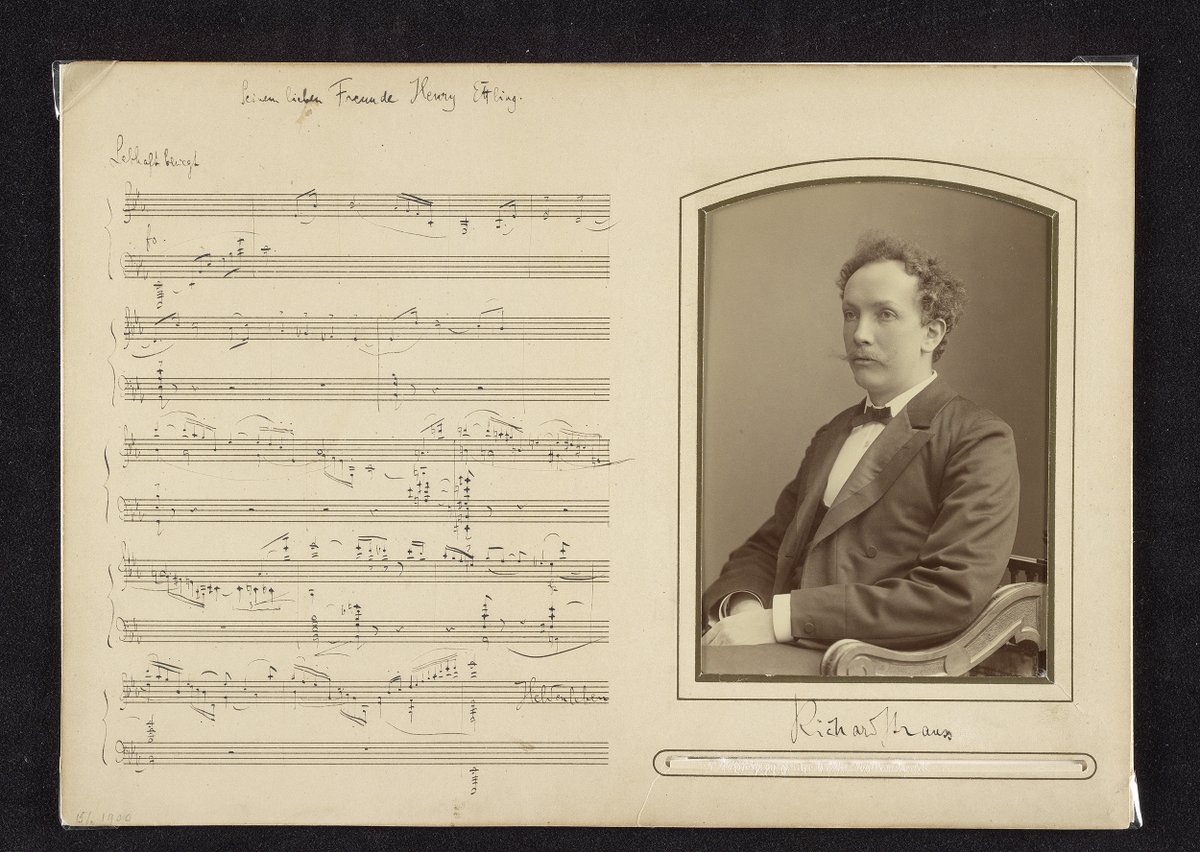 Seinem lieben Freunde Henry Ettling.
Lebhaft bewegt
Heldenleben
Richard Strauss
1900